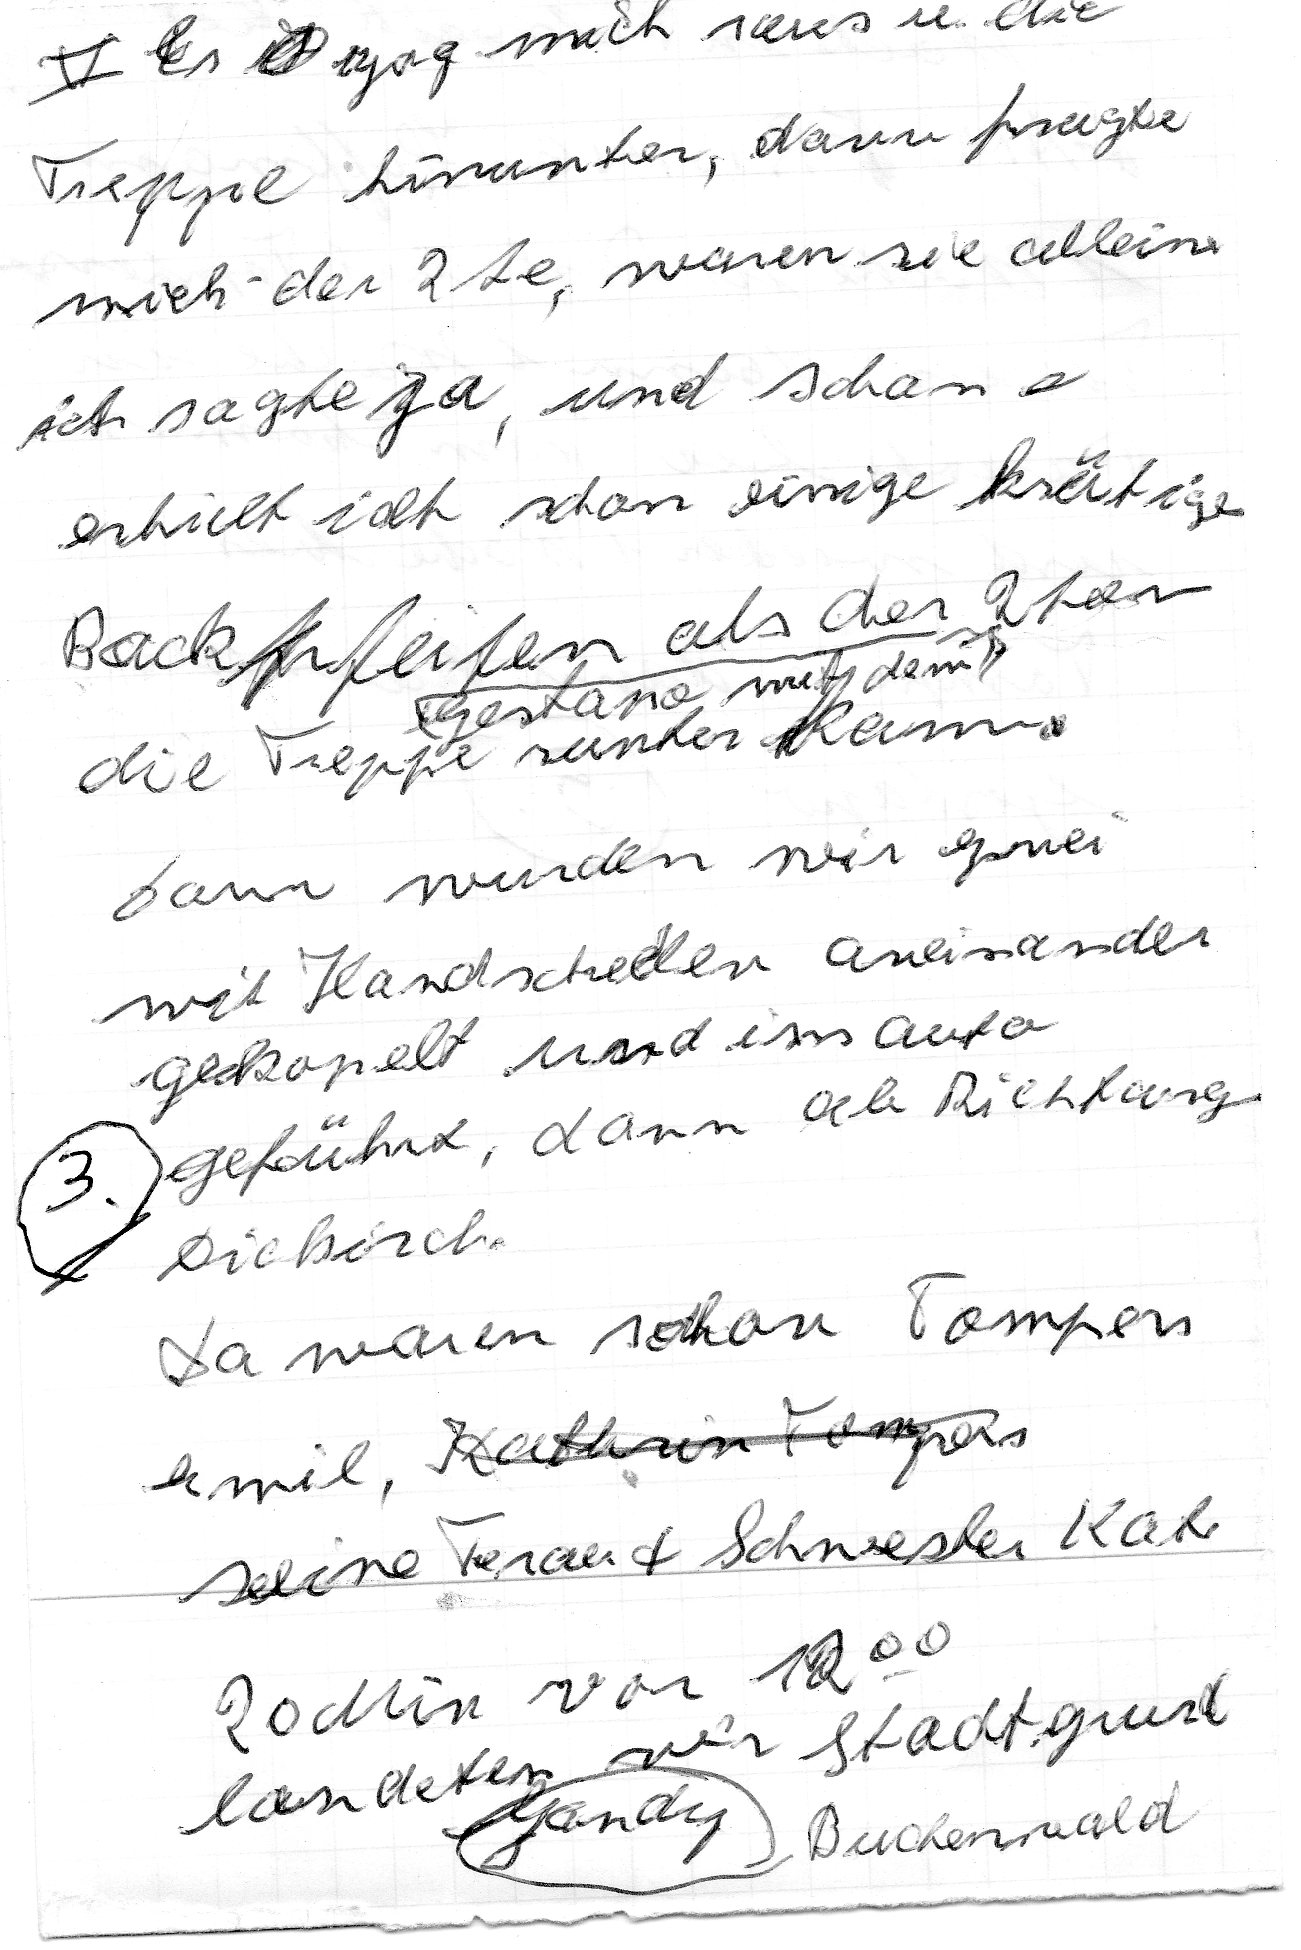 V Er zog mich raus u. die
Treppe hinunter, dann fragte
mich der 2te, waren sie alleine
ich sagte ja, und schon
erhielt ich schon einige krätige
Backpfeifen als der 2ten
gestano mit dem
die Treppe runter kamm.
dann wurden wir zwei
mit Handschellen aneinander
gekopelt und ins auto
geführt, dann ab Richtung
3.
Diekirch.
Da waren schon Tompers
emil, Kathrin Tompers
seine Frau & Schwester Kat
vor 12 00
landeten wir Stadtgrund
Gandy Buchenwald